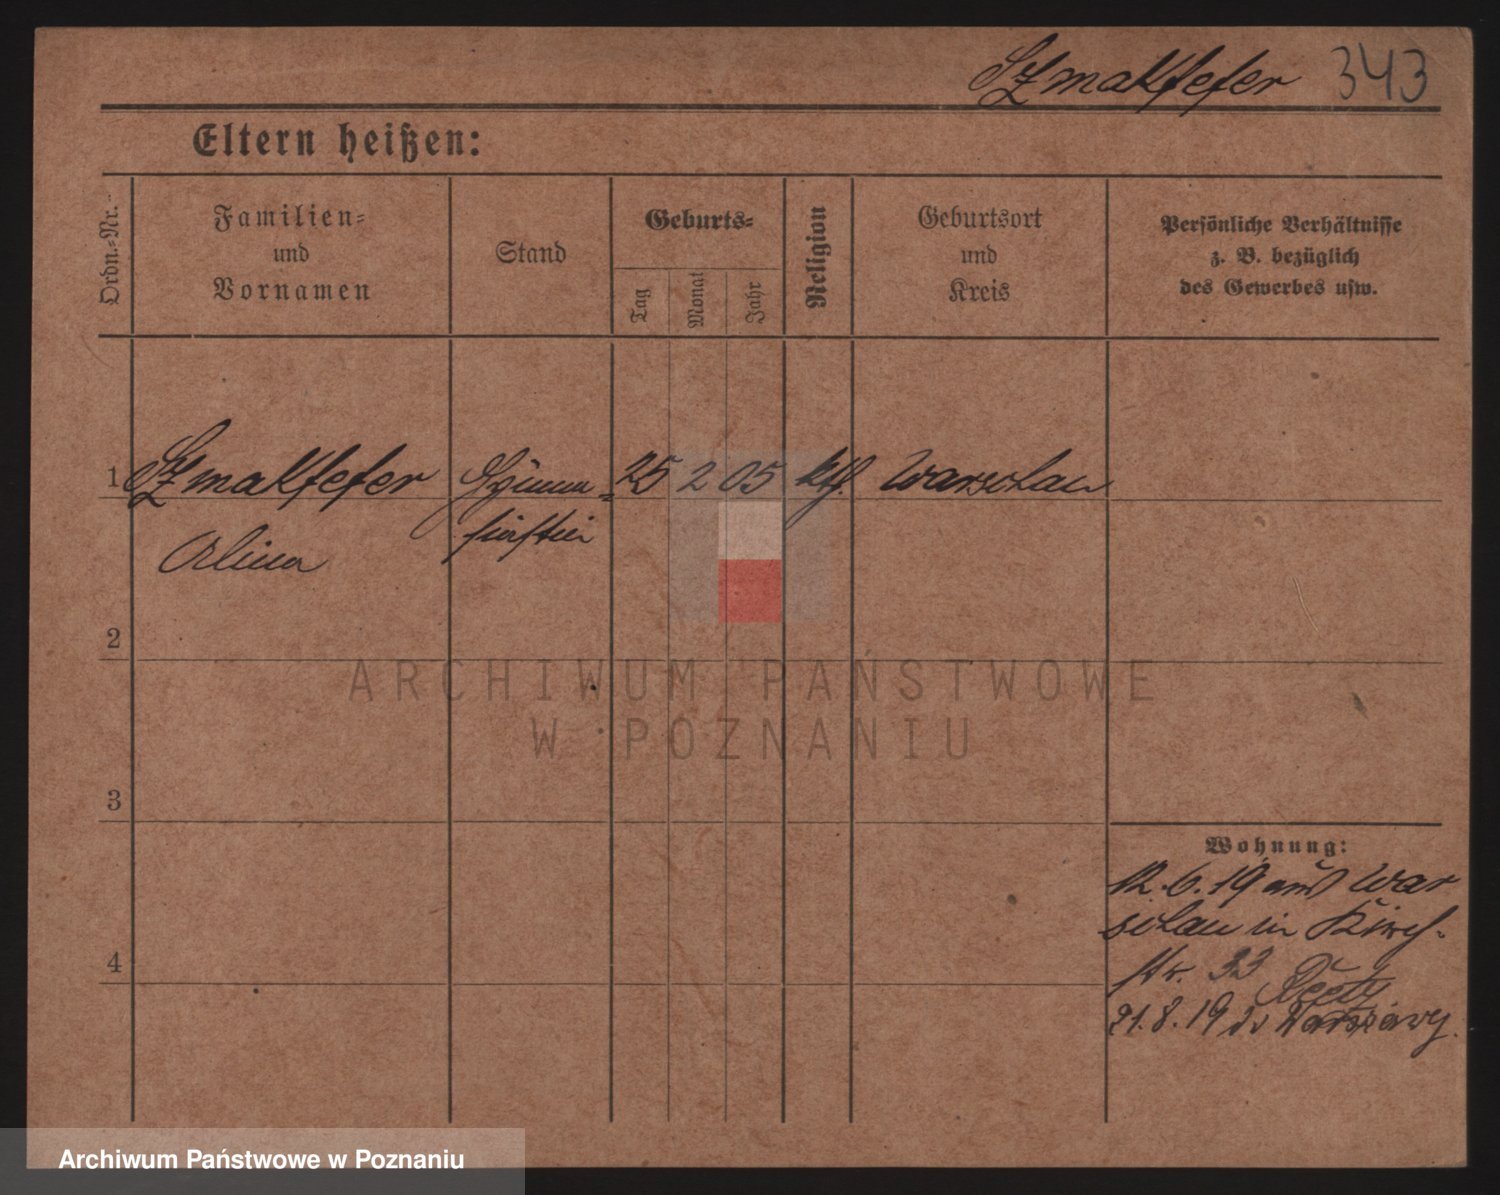 Szmalkfefer 343
Eltern heißen:
Ordn.-Nr.
Familien-
und
Vornamen
Stand
Geburts-
Tag
Monat
Jahr
Religion
Geburtsort
und
Kreis
Persönliche Verhältnisse
z. B. bezüglich
des Gewerbes usw.
1
Szmalkfefer
Alina
25 2 05
ktf.
Warschau
2
3
4
Wohnung:
12.6.19 aus War
schau in Kirch-
str. 33
21.8.19 do Warszawy.
ARCHIWUM PAŃSTWOWE
W POZNANIU
Archiwum Państwowe w Poznaniu